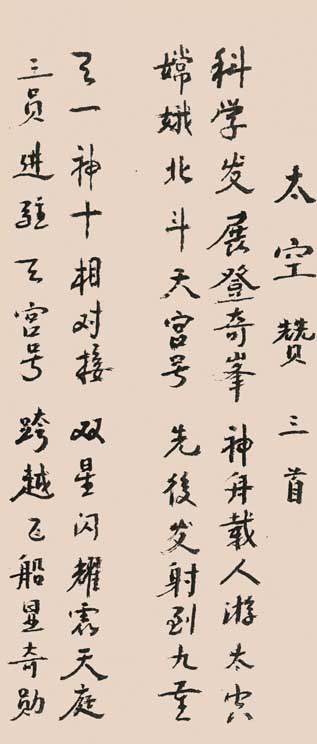 太空赞 三首
科学发展登奇峯 神舟载人游太空
嫦娥北斗天宫号 先後发射到九重
天一神十相对接 双星闪耀震天庭
三员进驻天宫号 跨越飞船显奇勋